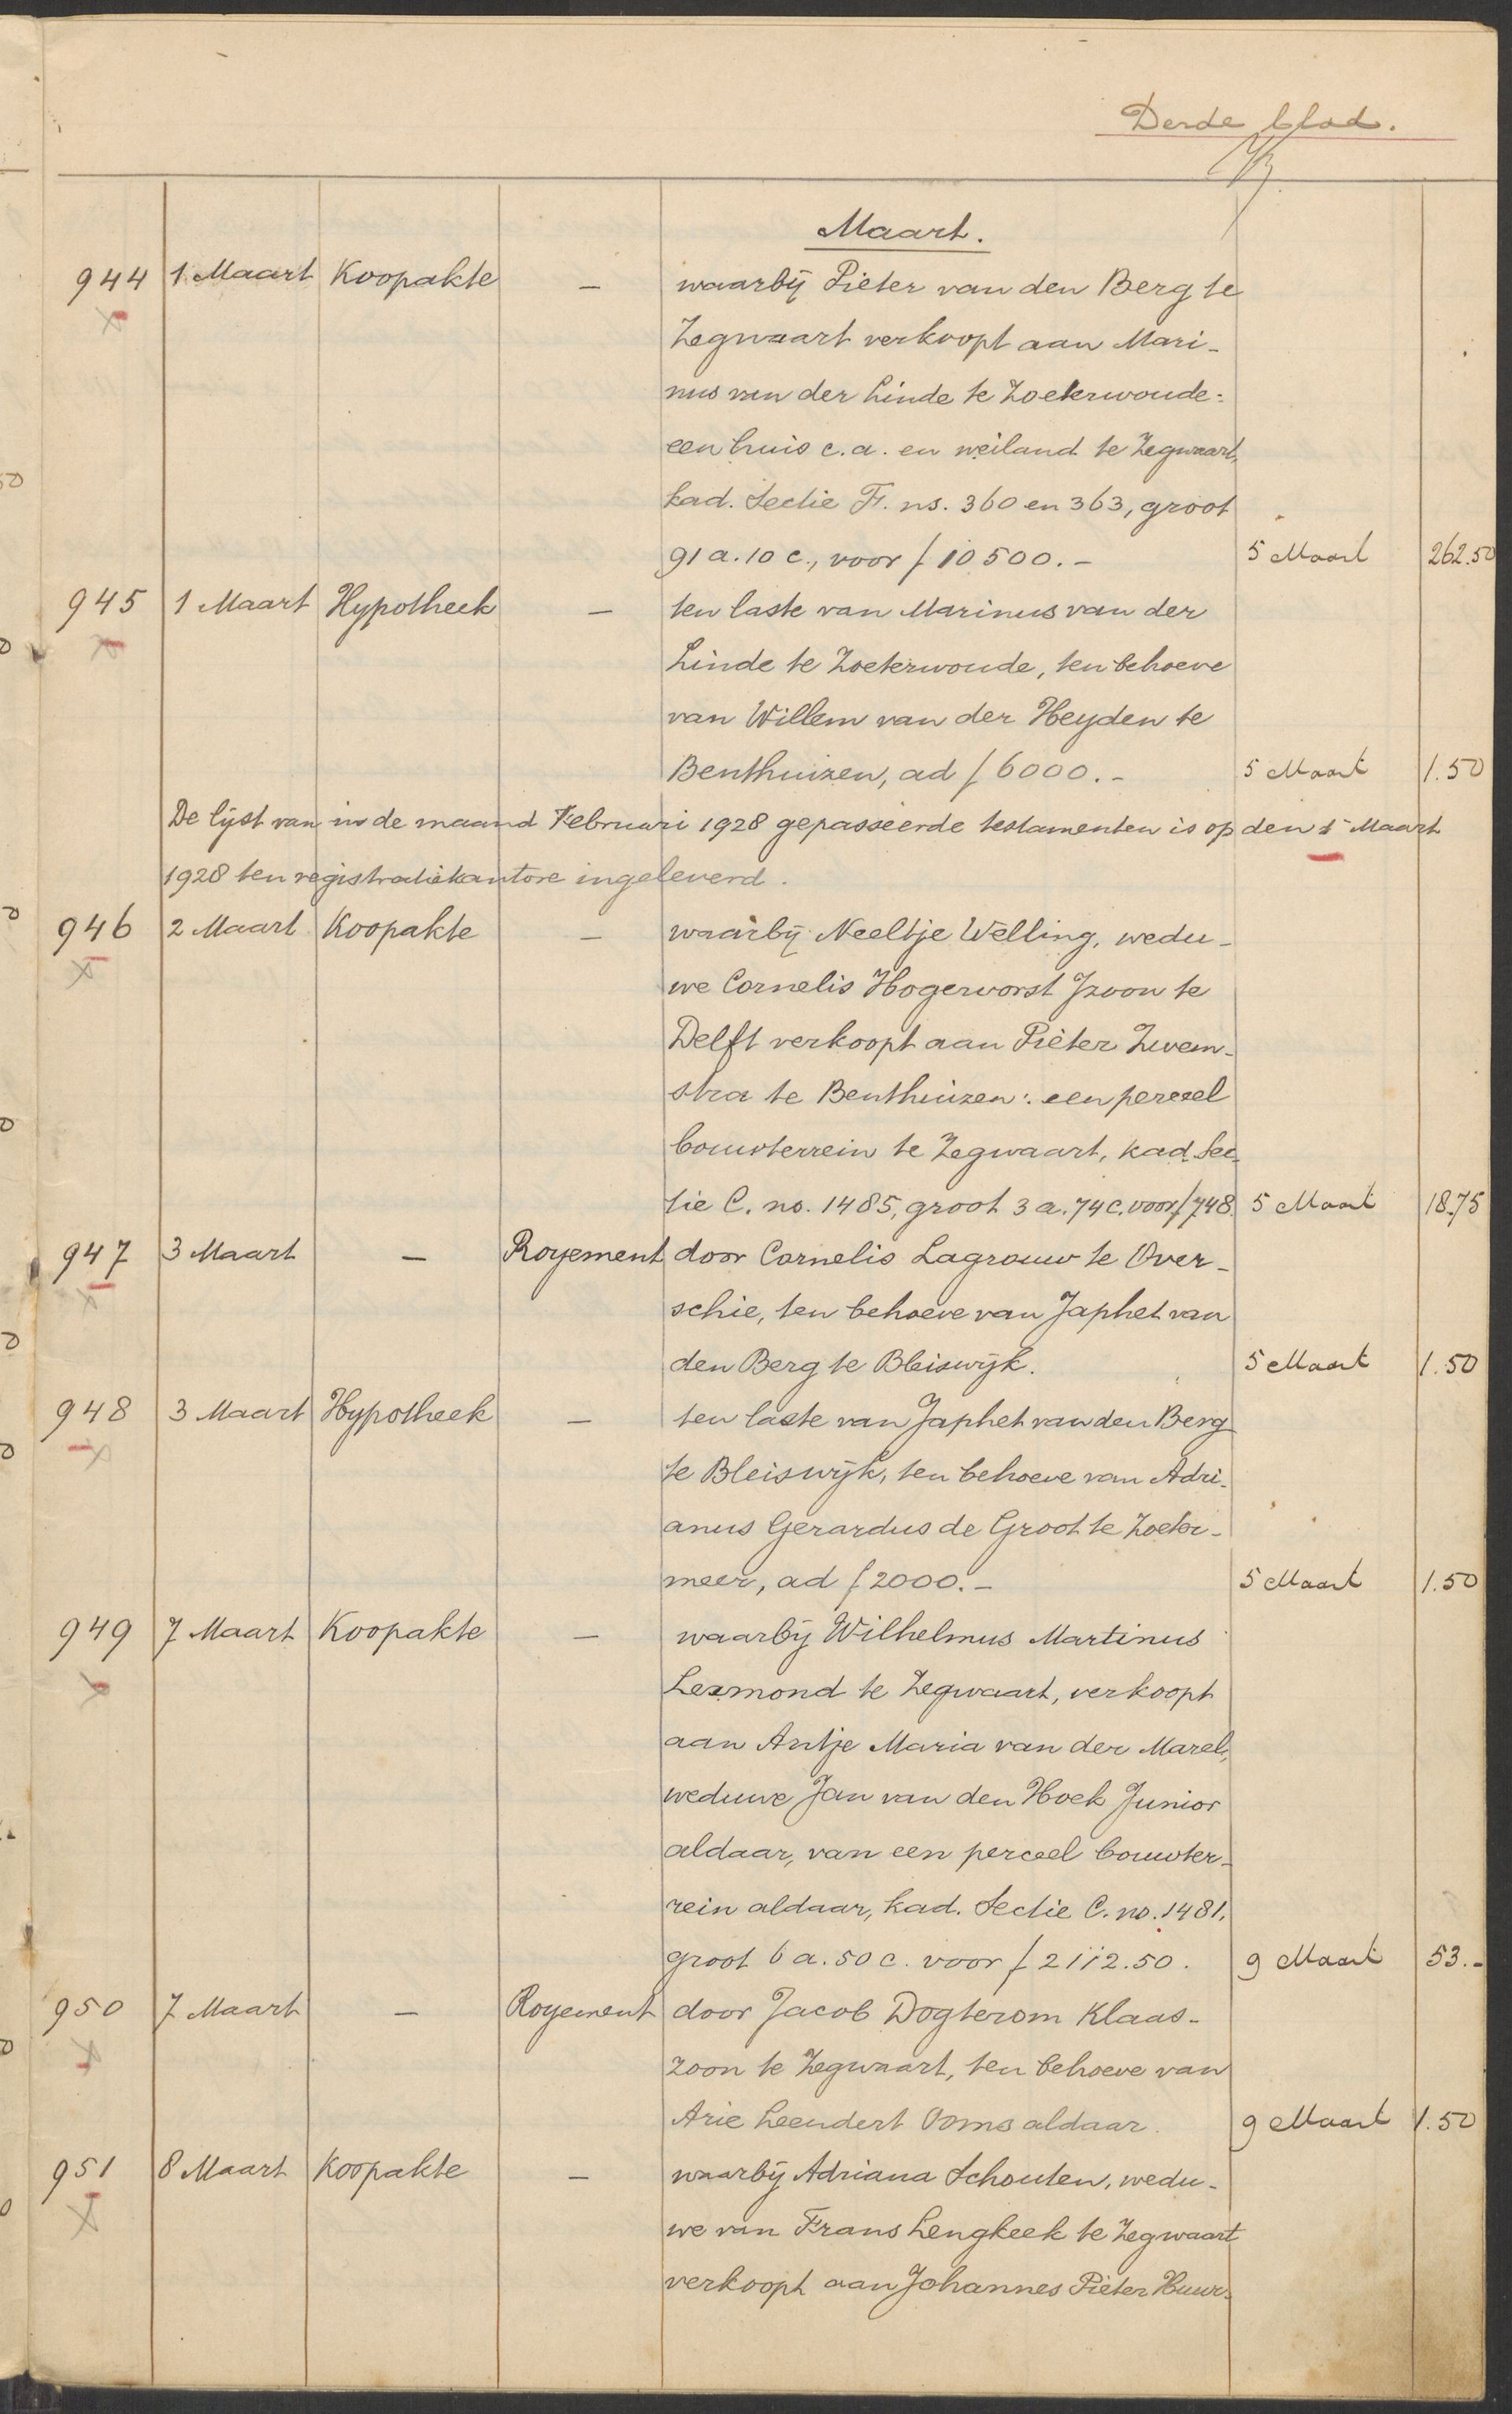 Derde blad.
Maart.
944 1 Maart Koopakte — waarbij Pieter van den Berg te
Zegwaart verkoopt aan Mari-
nus van der Linde te Zoeterwoude:
een huis c.a. en weiland te Zegwaart,
kad. Sectie F. ns. 360 en 363, groot
91 a. 10 c., voor ƒ 10500.- 5 Maart 262.50
945 1 Maart Hypotheek — ten laste van Marinus van der
Linde te Zoeterwoude, ten behoeve
van Willem van der Heyden te
Benthuizen, ad ƒ 6000.- 5 Maart 1.50
De lijst van in de maand Februari 1928 gepasseerde testamenten is op den 1 Maart
1928 ten registratiekantore ingeleverd.
946 2 Maart Koopakte — waarbij Neeltje Welling, wedu-
we Cornelis Hogervorst Jzoon te
Delft verkoopt aan Pieter Zwem-
stra te Benthuizen: een perceel
bouwterrein te Zegwaart, kad. Sec-
tie C. no. 1485, groot 3 a. 74 c. voor ƒ 748. 5 Maart 18.75
947 3 Maart — Royement door Cornelis Lagrouw te Over-
schie, ten behoeve van Japhet van
den Berg te Bleiswijk. 5 Maart 1.50
948 3 Maart Hypotheek — ten laste van Japhet van den Berg
te Bleiswijk, ten behoeve van Adri-
anus Gerardus de Groot te Zoeter-
meer, ad ƒ 2000.- 5 Maart 1.50
949 7 Maart Koopakte — waarbij Wilhelmus Martinus
Lexmond te Zegwaart, verkoopt
aan Antje Maria van der Marel,
weduwe Jan van den Hoek Junior
aldaar, van een perceel bouwter-
rein aldaar, kad. Sectie C. no. 1481,
groot 6 a. 50 c. voor ƒ 2112.50. 9 Maart 53.-
950 7 Maart — Royement door Jacob Dogterom Klaas-
zoon te Zegwaart, ten behoeve van
Arie Leendert Ooms aldaar. 9 Maart 1.50
951 8 Maart Koopakte — waarbij Adriana Schouten, wedu-
we van Frans Lengkeek te Zegwaart
verkoopt aan Johannes Pieter Huur-